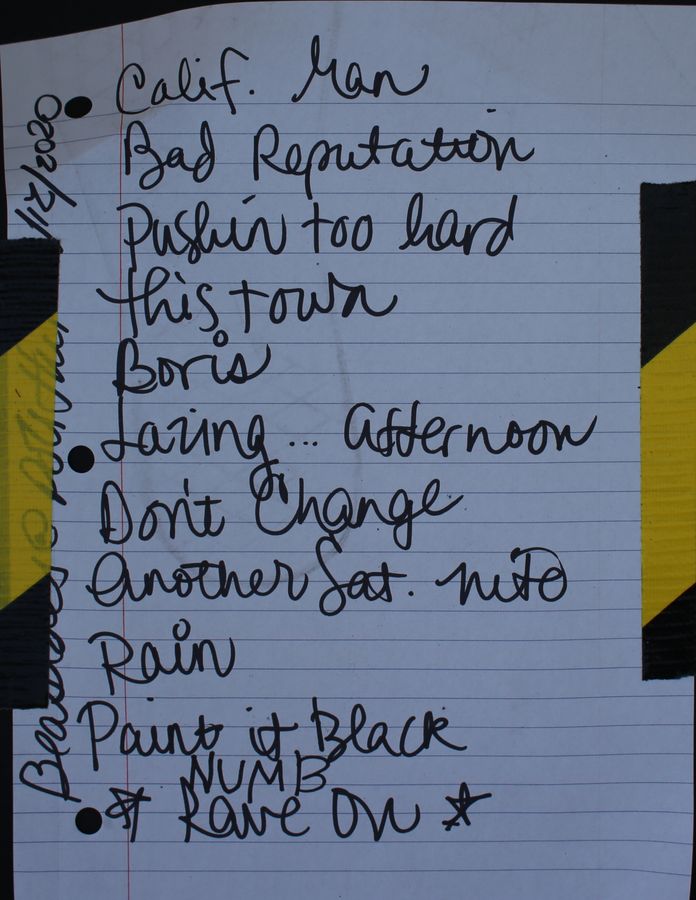 Calif. Man
Bad Reputation
Pushin too hard
this town
Boris
Lazing... afternoon
Don't Change
Another Sat. nite
Rain
Paint it Black
NUMB
☆ Rave On ☆
/12/2020